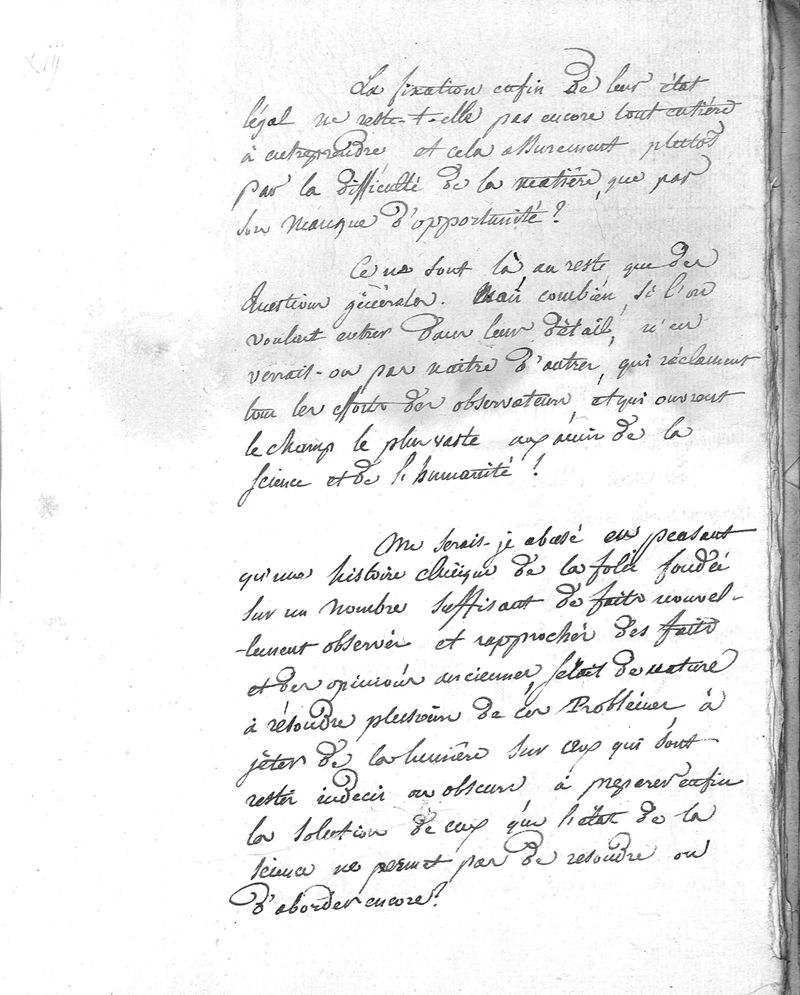 xiij
La fixation enfin de leur état
légal ne reste-t-elle pas encore tout entière
à entreprendre et cela assurement plutôt
par la difficulté de la matière, que par
son manque d'opportunité ?
Ce ne sont là, au reste, que des
Questions générales. Mais combien, si l'on
voulait entrer dans leur détail, n'en
verrait-on pas naitre d'autres, qui réclament
tous les efforts des observateurs et qui ouvrent
le champ le plus vaste aux amis de la
science et de l'humanité !
Me serais-je abusé en pensant
qu'une histoire clinique de la folie fondée
sur un nombre suffisant de faits nouvel-
-lement observés et rapprochés des faits
et des opinions anciennes, serait de nature
à résoudre plusieurs de ces Problêmes à
jèter de la lumière sur ceux qui sont
restés indecis ou obscurs à préparer enfin
la solution de ceux que l'état de la
science ne permet pas de resoudre ou
d'aborder encore ?